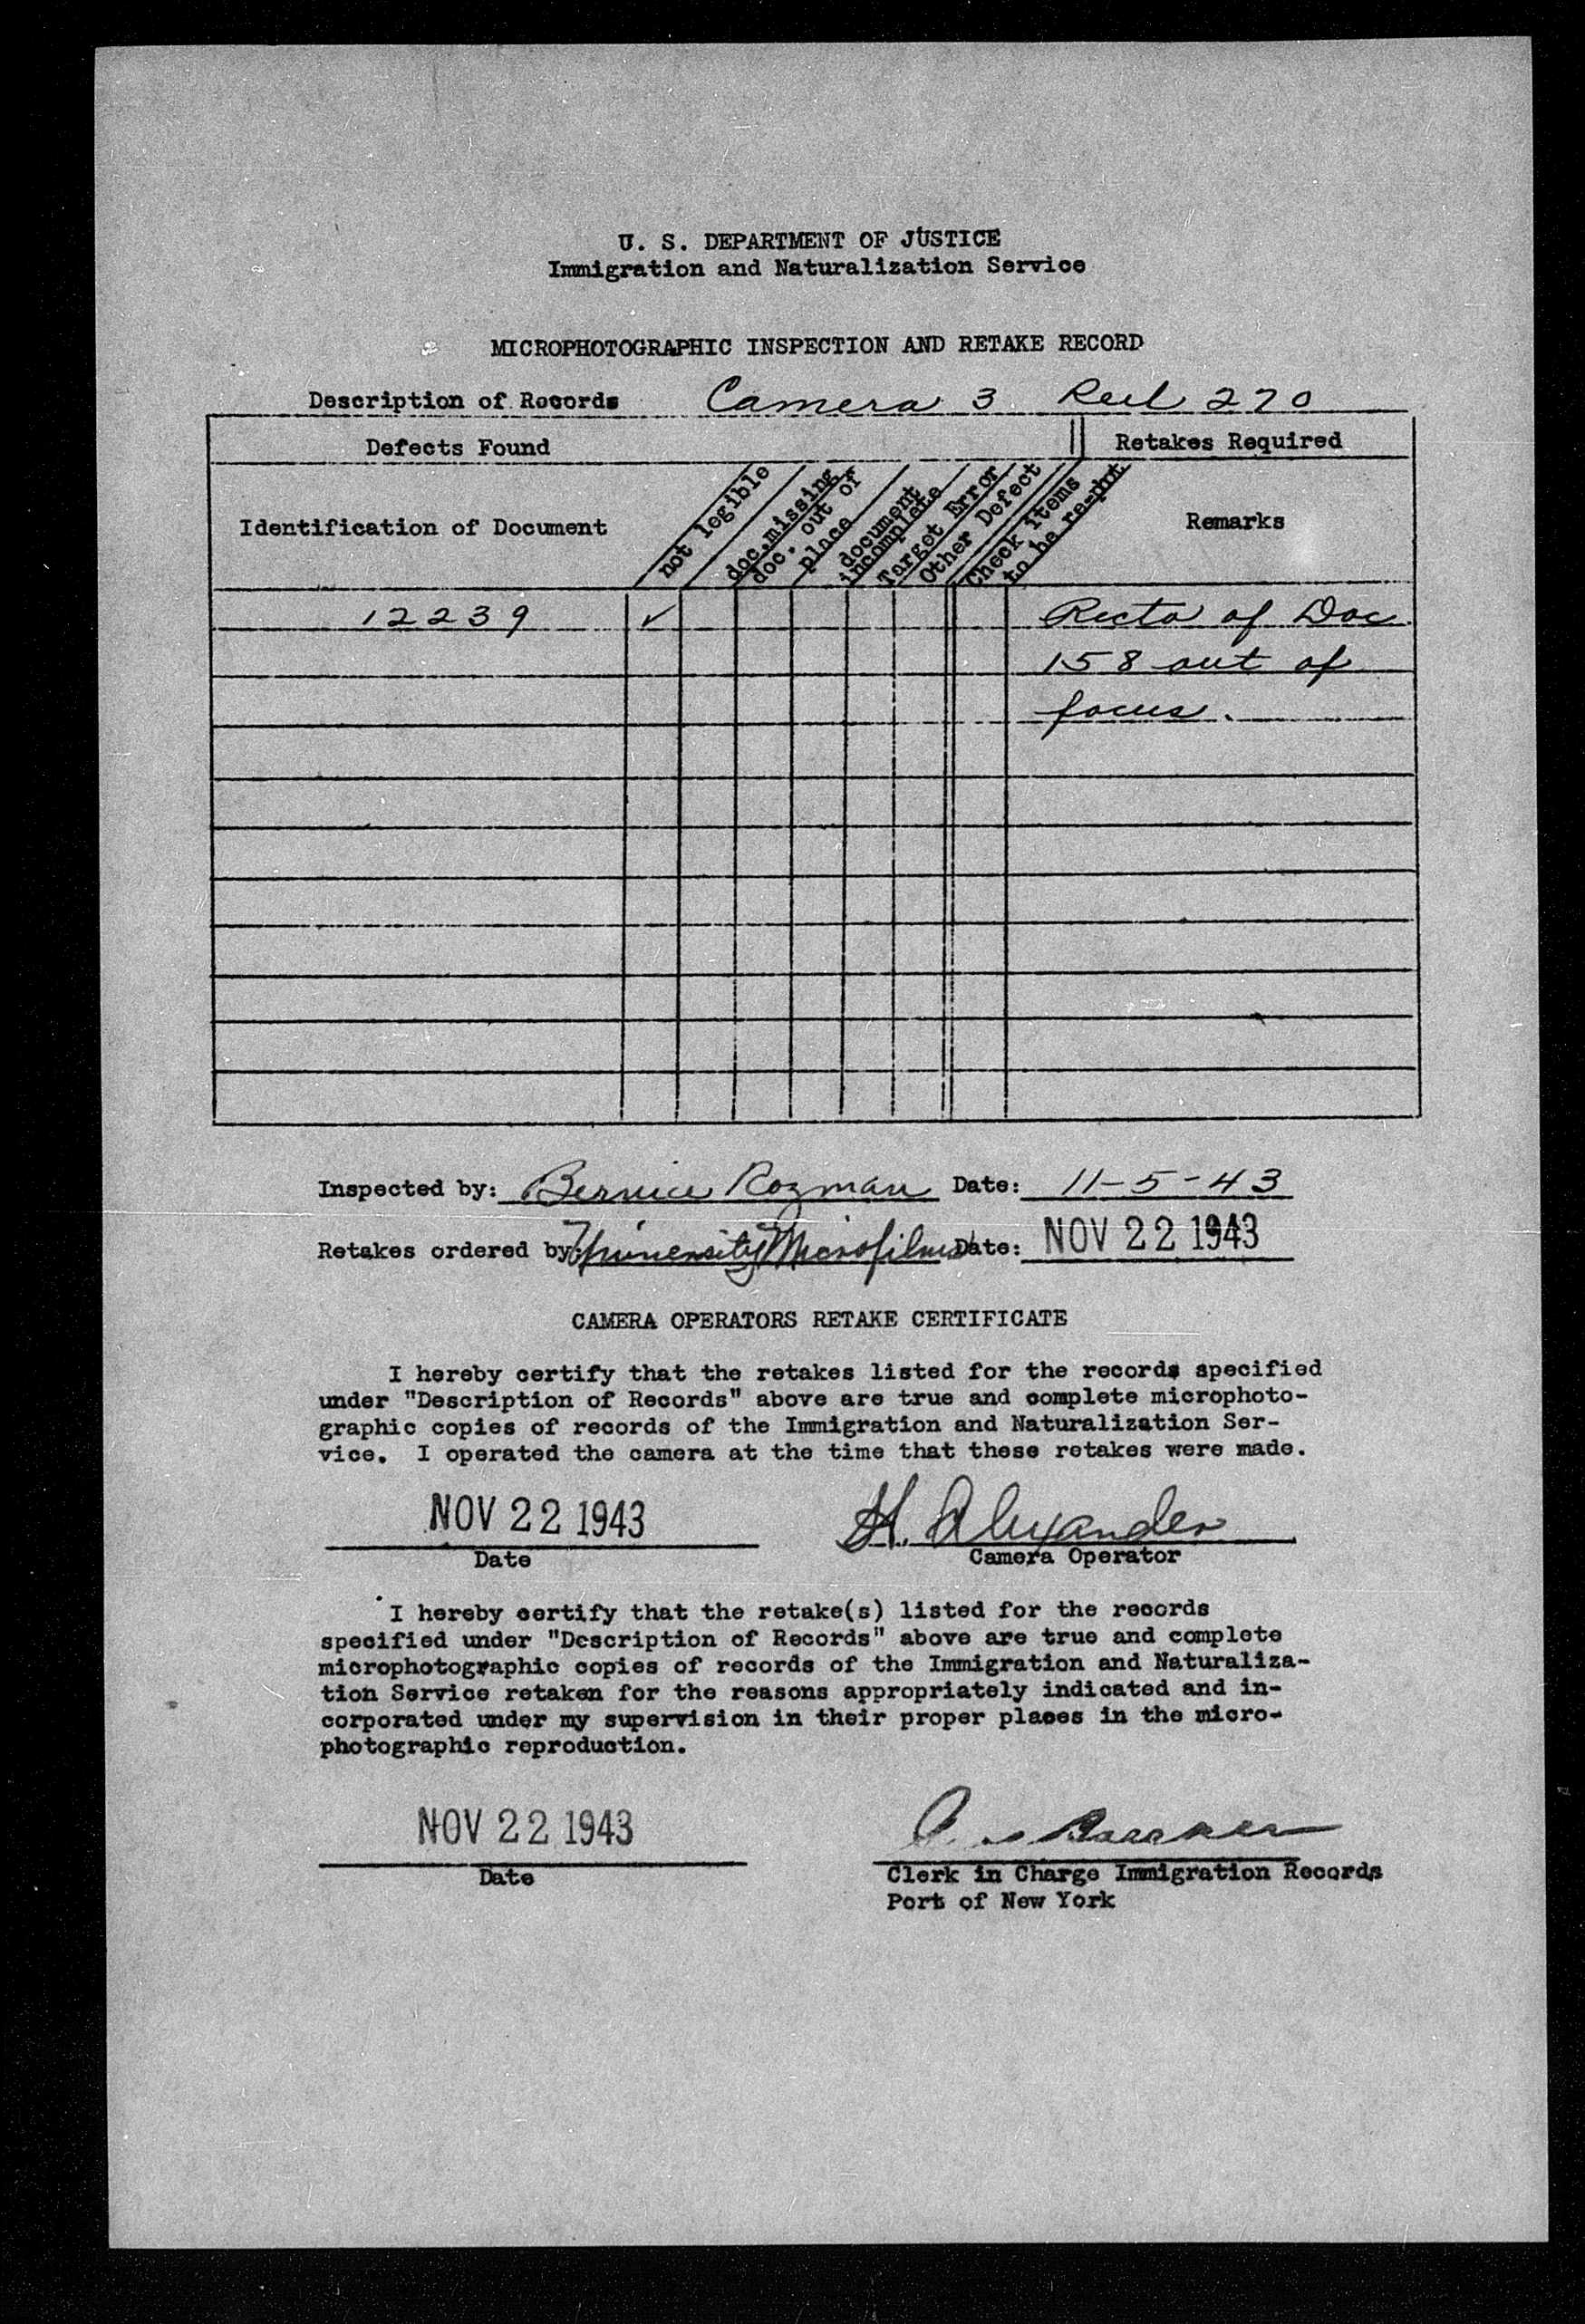 U. S. DEPARTMENT OF JUSTICE
Immigration and Naturalization Service
MICROPHOTOGRAPHIC INSPECTION AND RETAKE RECORD
Description of Records Camera 3 Reel 270
Defects Found Retakes Required
Identification of Document
not legible
doc. missing
doc. out of
place
document
incomplete
Target Error
Other Defect
Check items
to be re-phot
Remarks
12239 ✓ Recto of Doc.
158 out of
focus.
Inspected by: Bernice Rozman Date: 11-5-43
Retakes ordered by: University Microfilms Date: NOV 22 1943
CAMERA OPERATORS RETAKE CERTIFICATE
I hereby certify that the retakes listed for the records specified
under "Description of Records" above are true and complete microphoto-
graphic copies of records of the Immigration and Naturalization Ser-
vice. I operated the camera at the time that these retakes were made.
NOV 22 1943 H. Alexander
Date Camera Operator
I hereby certify that the retake(s) listed for the records
specified under "Description of Records" above are true and complete
microphotographic copies of records of the Immigration and Naturaliza-
tion Service retaken for the reasons appropriately indicated and in-
corporated under my supervision in their proper places in the micro-
photographic reproduction.
NOV 22 1943
Date Clerk in Charge Immigration Records
Port of New York